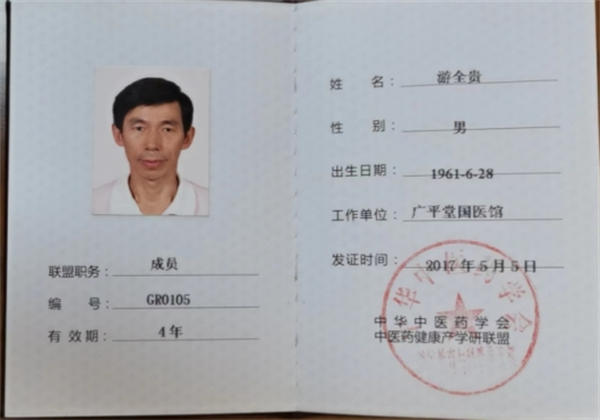 联盟职务： 成员
编 号： GR0105
有效期： 4年
姓 名： 游全贵
性 别： 男
出生日期： 1961-6-28
工作单位： 广平堂国医馆
发证时间： 2017年5月5日
中华中医药学会
中医药健康产学研联盟